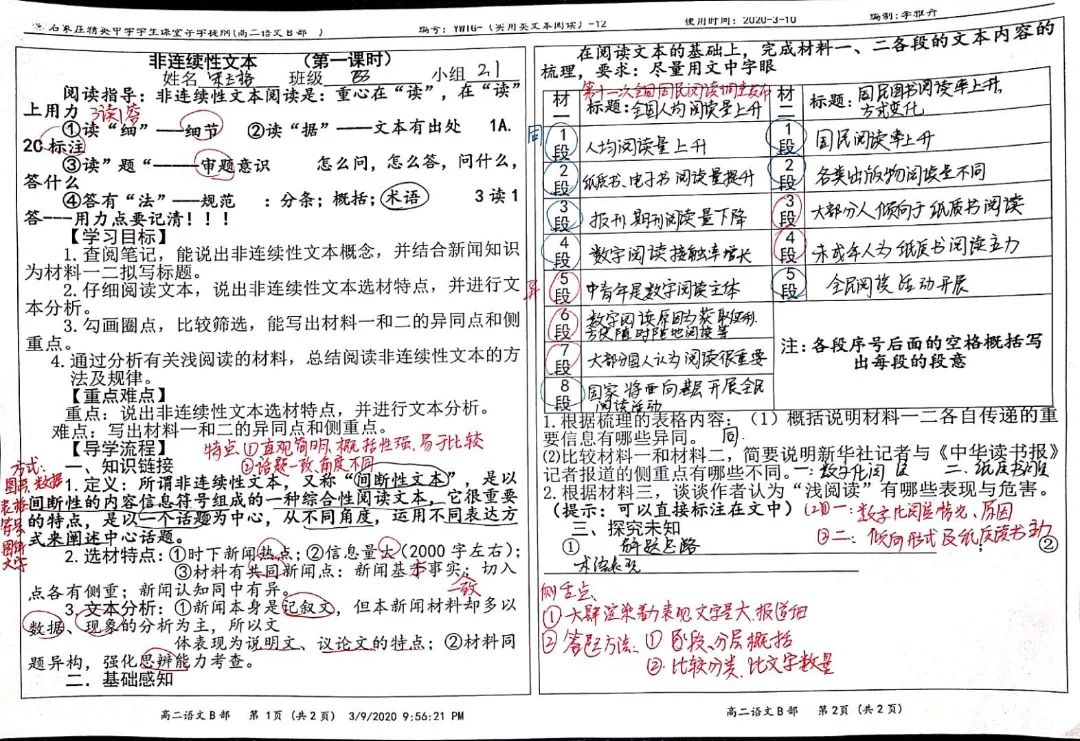 石家庄精英中学学生课堂导学提纲(高二语文B部　)　编号：YWTG-（实用类文本阅读）-12　使用时间：2020-3-10　编制：李雅丹
非连续性文本　（第一课时）
姓名　班级　小组 21
阅读指导：非连续性文本阅读是：重心在“读”，在“读”
上用力　3读1答
①读“细”——细节　②读“据”——文本有出处　1A.
2C 标注
③读”题“———审题意识　怎么问，怎么答，问什么，
答什么
④答有“法”——规范　：分条；概括；术语　3 读 1
答---用力点要记清！！！
【学习目标】
1.查阅笔记，能说出非连续性文本概念，并结合新闻知识
为材料一二拟写标题。
2.仔细阅读文本，说出非连续性文本选材特点，并进行文
本分析。
3.勾画圈点，比较筛选，能写出材料一和二的异同点和侧
重点。
4.通过分析有关浅阅读的材料，总结阅读非连续性文本的方
法及规律。
【重点难点】
重点：说出非连续性文本选材特点，并进行文本分析。
难点：写出材料一和二的异同点和侧重点。
【导学流程】　特点①直观简明、概括性强、易于比较
一、知识链接　②话题一致、角度不同
方式：
图片、数据
表格
图解
文字
1.定义：所谓非连续性文本，又称“间断性文本”，是以
间断性的内容信息符号组成的一种综合性阅读文本，它很重要
的特点，是以一个话题为中心，从不同角度，运用不同表达方
式来阐述中心话题。
2.选材特点：①时下新闻热点；②信息量大（2000 字左右）；
③材料有共同新闻点：新闻基本事实；切入
点各有侧重；新闻认知同中有异。　一致
3.文本分析：①新闻本身是记叙文，但本新闻材料却多以
数据、现象的分析为主，所以文
体表现为说明文、议论文的特点；②材料同
题异构，强化思辨能力考查。
二．基础感知
高二语文B部　第1页（共2页）3/9/2020 9:56:21 PM
在阅读文本的基础上，完成材料一、二各段的文本内容的
梳理，要求：尽量用文中字眼
材一　第十一次全国国民阅读调查发布
标题：全国人均阅读量上升　材二　标题：国民图书阅读率上升，
方式变化
同　1段　人均阅读量上升　1段　国民阅读率上升
2段　纸质书、电子书阅读量提升　2段　各类出版物阅读量不同
3段　报刊期刊阅读量下降　3段　大部分人倾向于纸质书阅读
4段　数字阅读接触率增长　4段　未成年人为纸质书阅读主力
异　5段　中青年是数字阅读主体　5段　全民阅读活动开展
6段　数字阅读原因为获取便利
方便随时随地阅读等
7段　大部分国人认为阅读很重要
8段　国家将面向基层开展全民
阅读活动
注：各段序号后面的空格概括写
出每段的段意
1.根据梳理的表格内容：（1）概括说明材料一二各自传递的重
要信息有哪些异同。　同.
(2)比较材料一和材料二，简要说明新华社记者与《中华读书报》
记者报道的侧重点有哪些不同。一：数字化阅读　二、纸质书阅读
2.根据材料三，谈谈作者认为“浅阅读”有哪些表现与危害。
（提示：可以直接标注在文中）　一：数字化阅读情况、原因
三、探究未知　②二、倾向形式及纸质读书主力
①　解题思路　；②
侧重点、
①大肆渲染 表现 文字量大、报道细
②答题方法、①段、分层概括
②比较分类、比文字数量
高二语文B部　第2页（共2页）